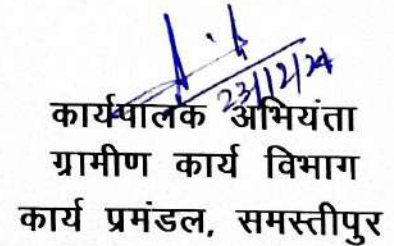 23/12/24
कार्यपालक अभियंता
ग्रामीण कार्य विभाग
कार्य प्रमंडल, समस्तीपुर